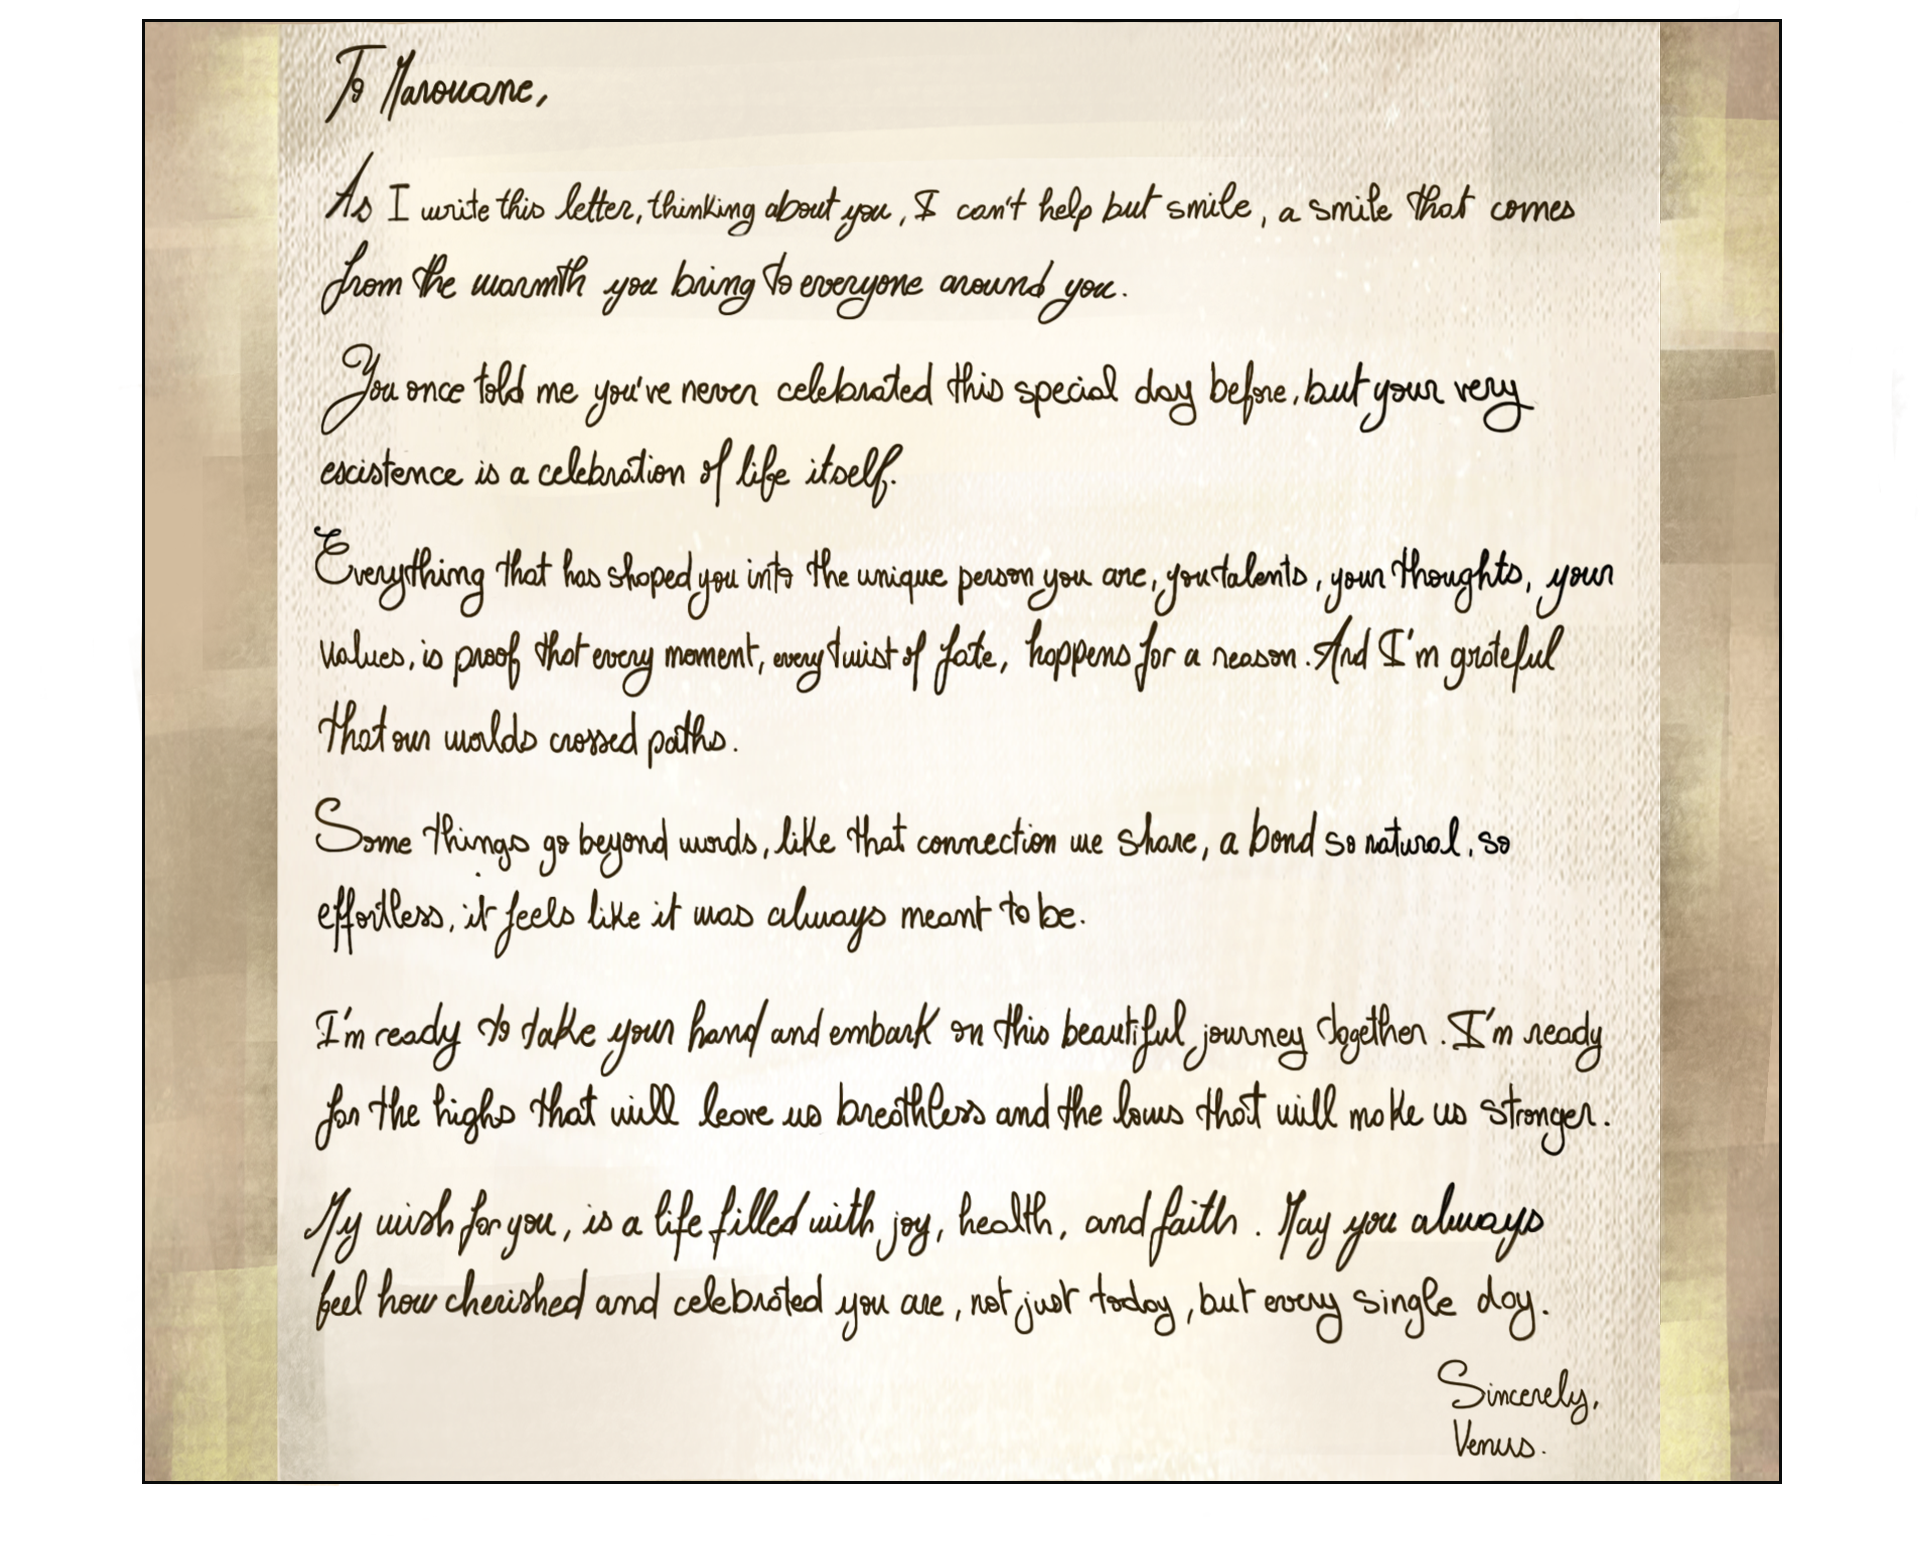 To Marouane,
As I write this letter, thinking about you, I can't help but smile, a smile that comes
from the warmth you bring to everyone around you.
You once told me you've never celebrated this special day before, but your very
existence is a celebration of life itself.
Everything that has shaped you into the unique person you are, you talents, your thoughts, your
values, is proof that every moment, every twist of fate, happens for a reason. And I'm grateful
that our worlds crossed paths.
Some things go beyond words, like that connection we share, a bond so natural, so
effortless, it feels like it was always meant to be.
I'm ready to take your hand and embark on this beautiful journey together. I'm ready
for the highs that will leave us breathless and the lows that will make us stronger.
My wish for you, is a life filled with joy, health, and faith. May you always
feel how cherished and celebrated you are, not just today, but every single day.
Sincerely,
Venus.